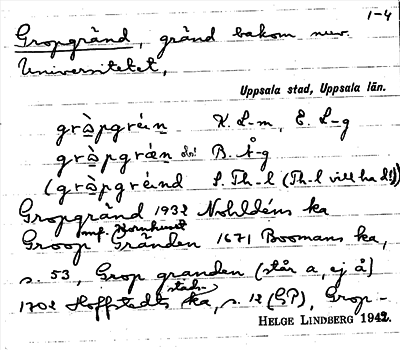 1-4
Gropgränd, gränd bakom nuv.
Universitetet,
Uppsala stad, Uppsala län.
grɑ̀pgrén K. L-m, E. L-g
grɑ̀pgrǽn B. Å-g
(grɑ̀pgréind S. Th-l (Th-l vill ha d!))
Gropgränd 1932 Nohldéns ka
jmf. Hornhuset
Groop Gränden 1671 Boomans ka,
s. 53, Grop granden (står a, ej å)
1702 Hoffstedts stads ka, s. 12 (GP), Grop-
HELGE LINDBERG 1942.